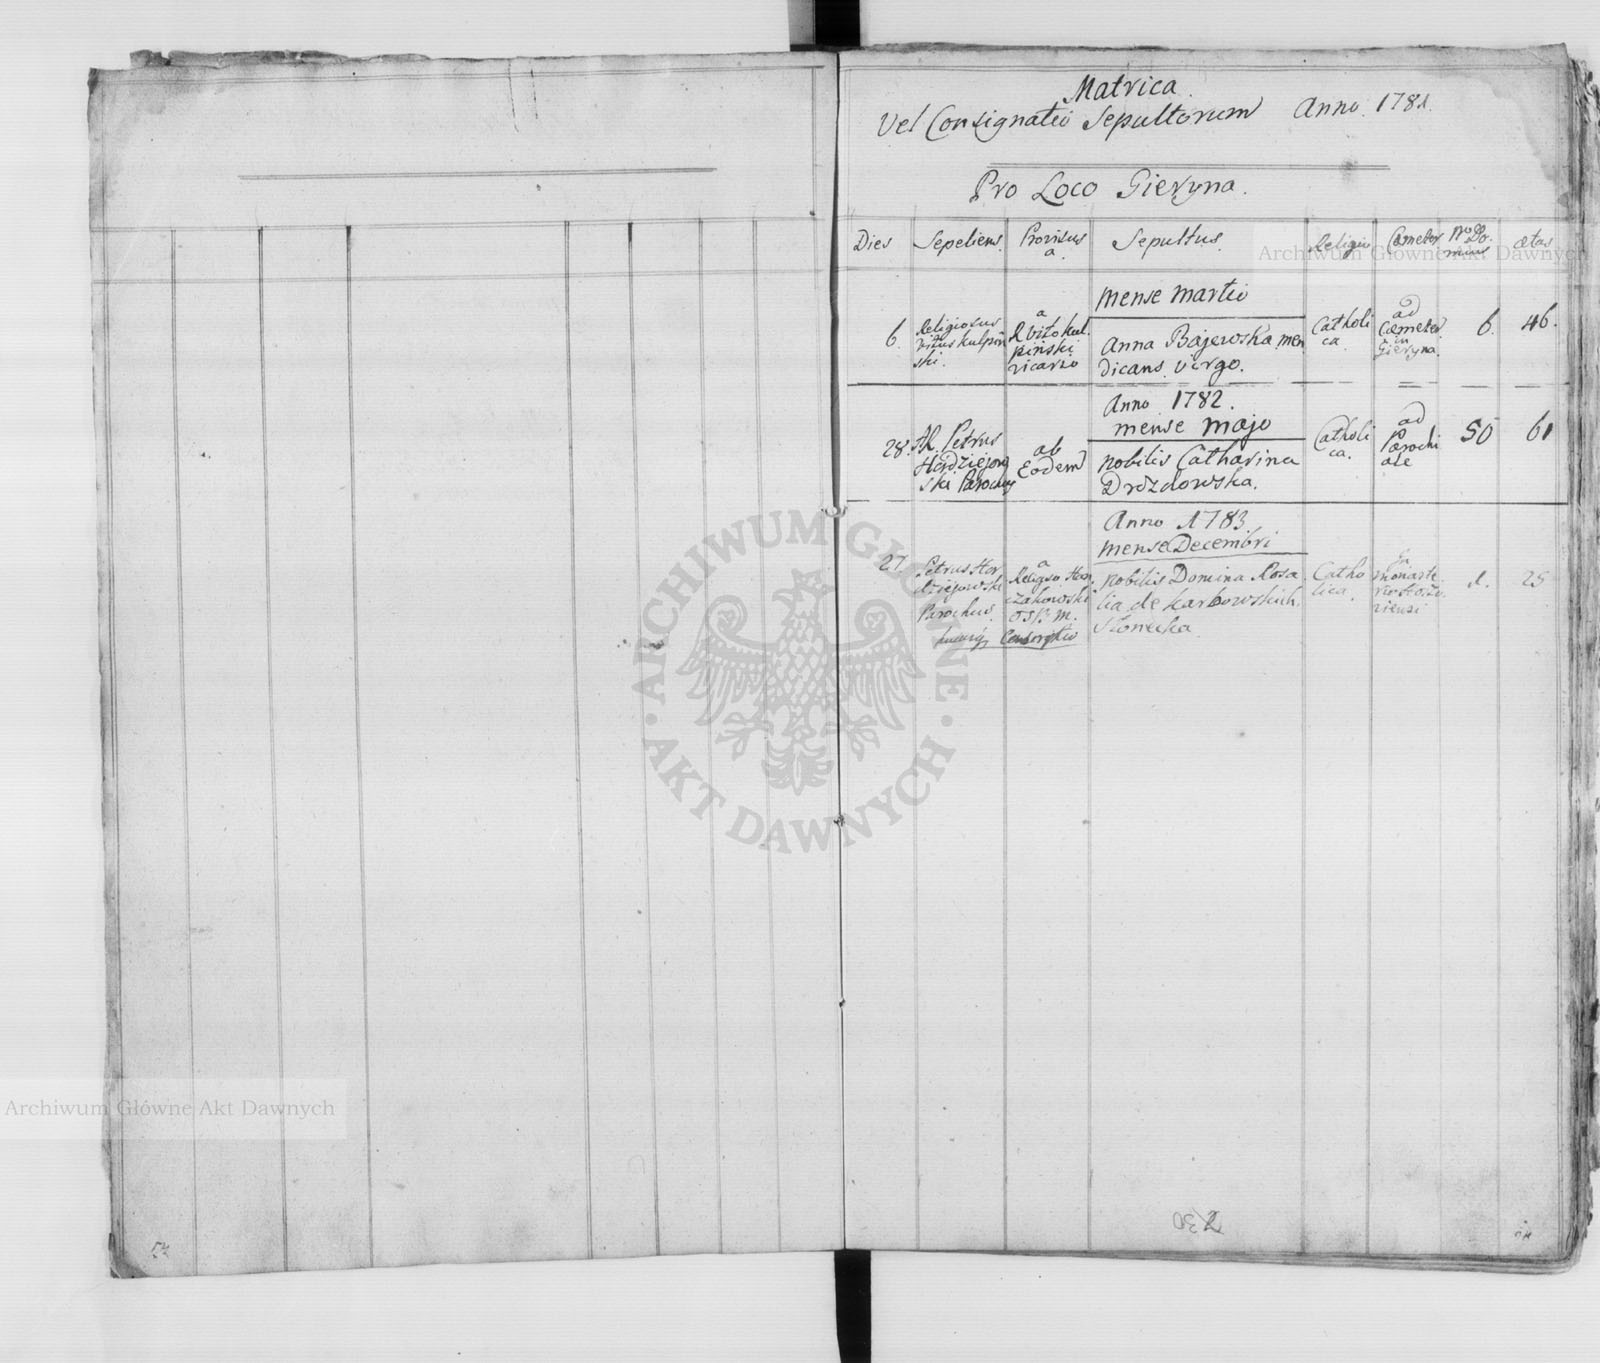 Matrica.
Vel Consignatio Sepultorum Anno 1781.
Pro Loco Gieryna.
Dies Sepeliens. Provisus a. Sepultus. Religio Cæmeter No Domus ætas
Archiwum Główne Akt Dawnych
mense martio
6. Religiosus Vitus Kulpiń ski. a R Vito Kul. pinski vicario Anna Bajewska men dicans virgo. Catholi ca ad Cæmeter in Gieryna. 6. 46.
Anno 1782.
mense majo
28. AR. Petrus Hordziejow ski Parochus ab Eodem nobilis Catharina Drozdowska. Catholi ca. ad Parochi ale 50 61
Anno 1783.
mense Decembri
27. Petrus Hor dziejowski Parochus. a Religso Hon czakowski nobilis Domina Rosa lia de Karbowskich Słonecka Catho lica. In monaste 1. 25
ARCHIWUM GŁÓWNE
AKT DAWNYCH
Archiwum Główne Akt Dawnych
230
54